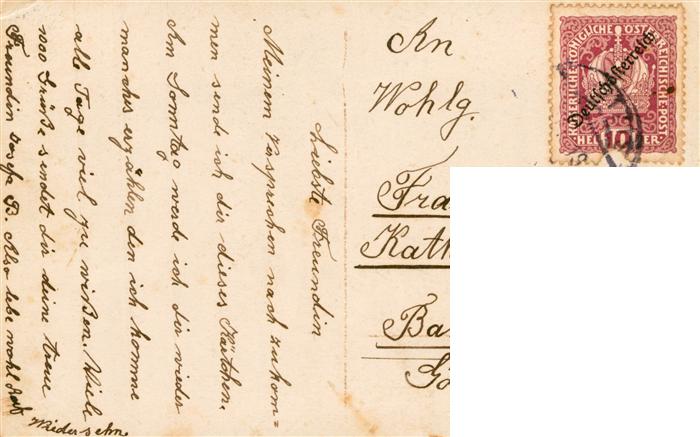 Liebste Freundin
Meinem Versprechen nach zukom-
men sende ich dir dieses Kärtchen.
Am Sonntag werde ich dir wieder
manches erzählen den ich komme
alle Tage viel zu wißen. Viele
1000 Grüße sendet dir deine treue
Freundin Josefa B. Also lebe wohl Auf
Wiedersehn.
An
Wohlg.
Fra
Kath
Ba
KAISERLICHE KÖNIGLICHE ÖSTERREICHISCHE POST
Deutschösterreich
HELLER
10